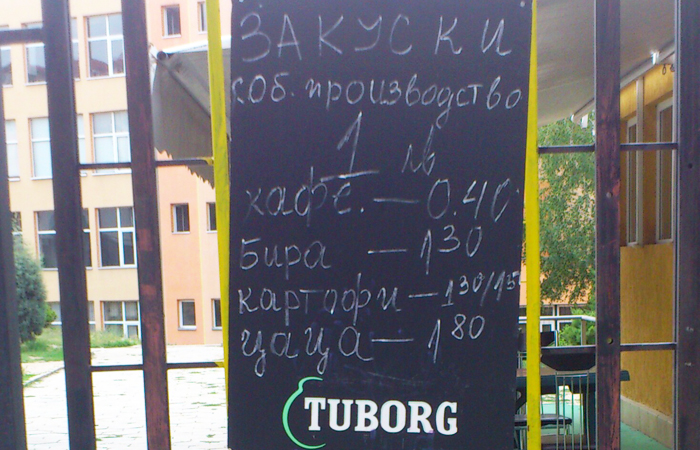 ЗАКУСКИ
соб. производство
1 лв
кафе. — 0.40
бира — 1 30
картофи — 1 30/15
цаца — 1 80
TUBORG